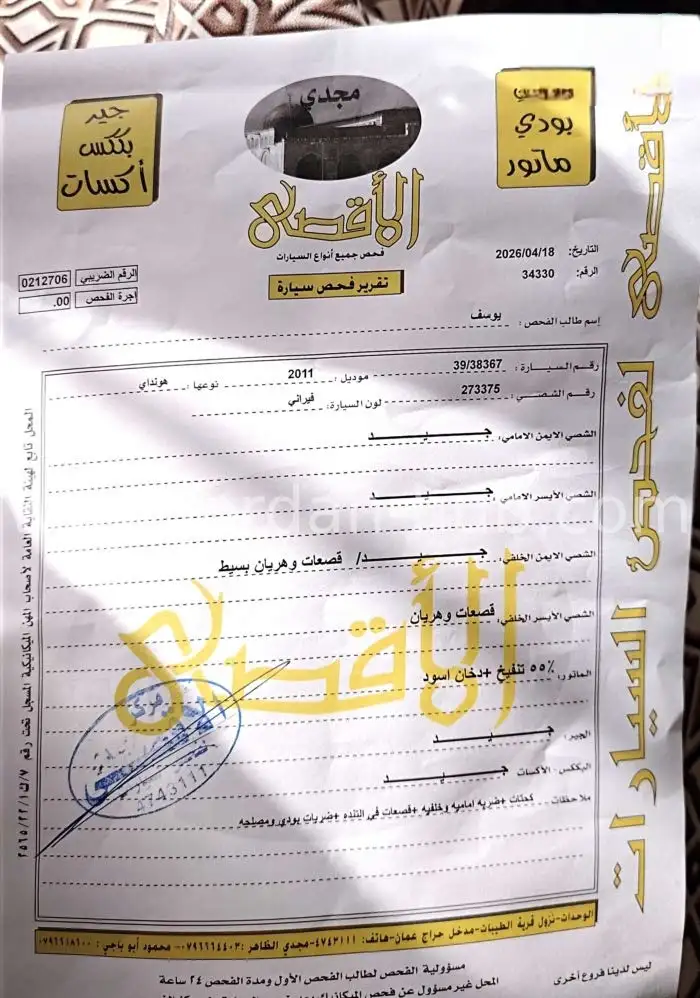 مجدي
الأقصى
فحص جميع أنواع السيارات
تقرير فحص سيارة
جير
بكس
أكسات
بودي
ماتور
التاريخ: 2026/04/18
الرقم: 34330
الرقم الضريبي 0212706
اجرة الفحص .00
إسم طالب الفحص: يوسف
رقم السيارة: 39/38367 موديل: 2011 نوعها: هونداي
رقم الشصي: 273375 لون السيارة: فيراني
الشصي الايمن الامامي: جيد
الشصي الأيسر الامامي: جيد
الشصي الايمن الخلفي: جيد/ قصعات وهريان بسيط
الشصي الأيسر الخلفي: قصعات وهريان
الماتور: ٥٥٪ تنفيخ +دخان اسود
الجير: جيد
البككس، الأكسات جيد
ملاحظات كحتات +ضربه اماميه وخلفيه +قصعات في التنده +ضربات بودي ومصلحه
الأقصى
4743111
الوحدات-نزول قرية الطيبات-مدخل حراج عمان-هاتف: ٤٧٤٣١١١-مجدي الظاهر: ٠٧٩٦٦٦٤٤٠٣-محمود أبو ياجي:
مسؤولية الفحص لطالب الفحص الأول ومدة الفحص ٢٤ ساعة
ليس لدينا فروع أخرى
المحل غير مسؤول عن فحص
المحل تابع لهيئة النقابة العامة لأصحاب المهن الميكانيكية المسجل تحت رقم
الأقصى لفحص السيارات